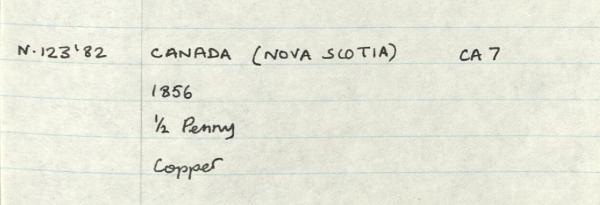 N.123'82 CANADA (NOVA SCOTIA) CA 7
1856
½ Penny
Copper